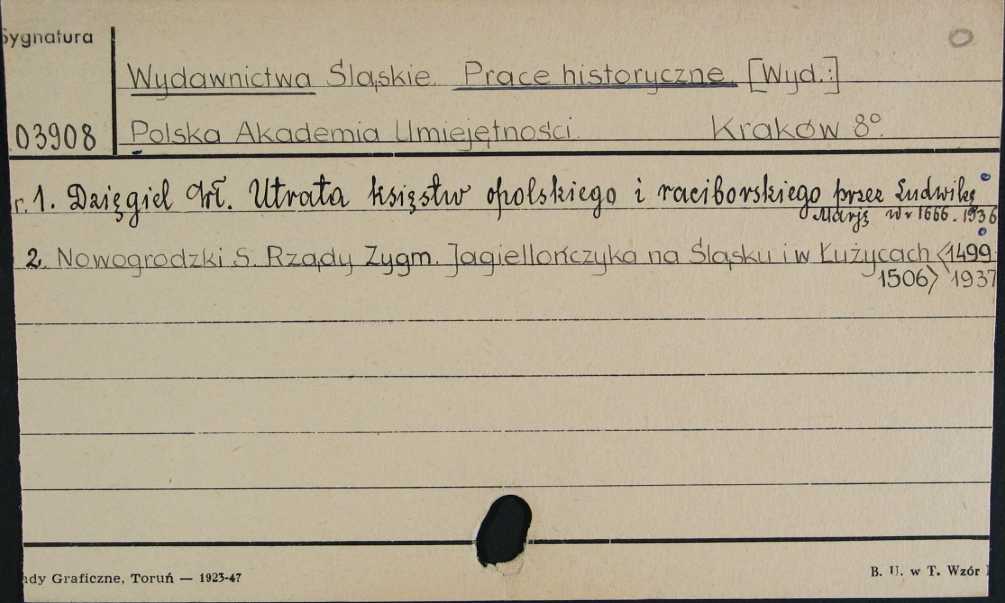 Sygnatura
Wydawnictwa Śląskie. Prace historyczne. [Wyd.:]
03908 Polska Akademia Umiejętności. Kraków 8°.
r. 1. Dzięgiel Wł. Utrata księstw opolskiego i raciborskiego przez Ludwikę
Marję w r 1666. 1936
2. Nowogrodzki S. Rządy Zygm. Jagiellończyka na Śląsku i w Łużycach <1499
1506> 1937
ady Graficzne, Toruń — 1923-47
B. U. w T. Wzór